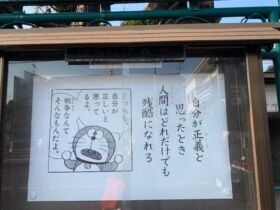 自分が正義と
思ったとき
人間はどれだけでも
残酷になれる
どっちも、
自分が
正しいと
思って
るよ。
戦争なんて
そんなもんだよ。